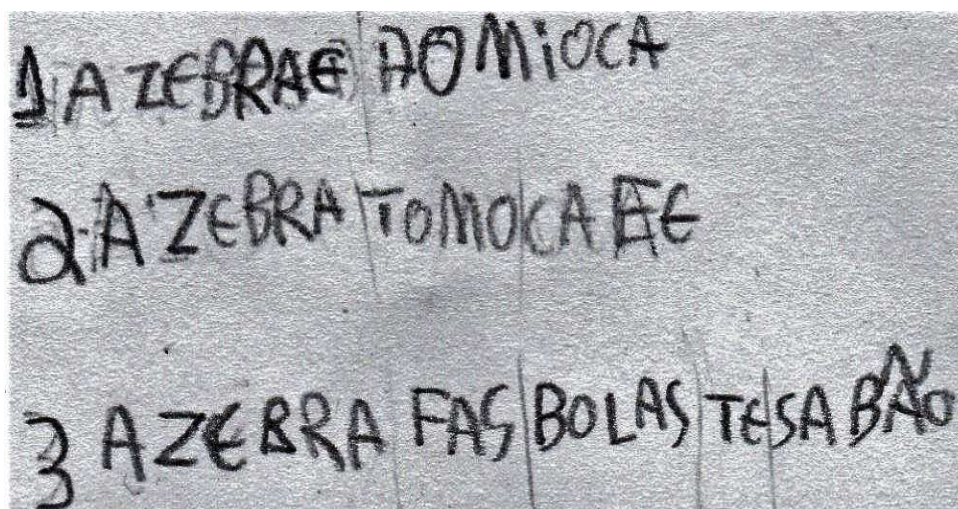 1 A ZEBRAE ADMIOCA
2 A ZEBRA TOMOCA EE
3 A ZEBRA FAS BOLAS TE SABÃO